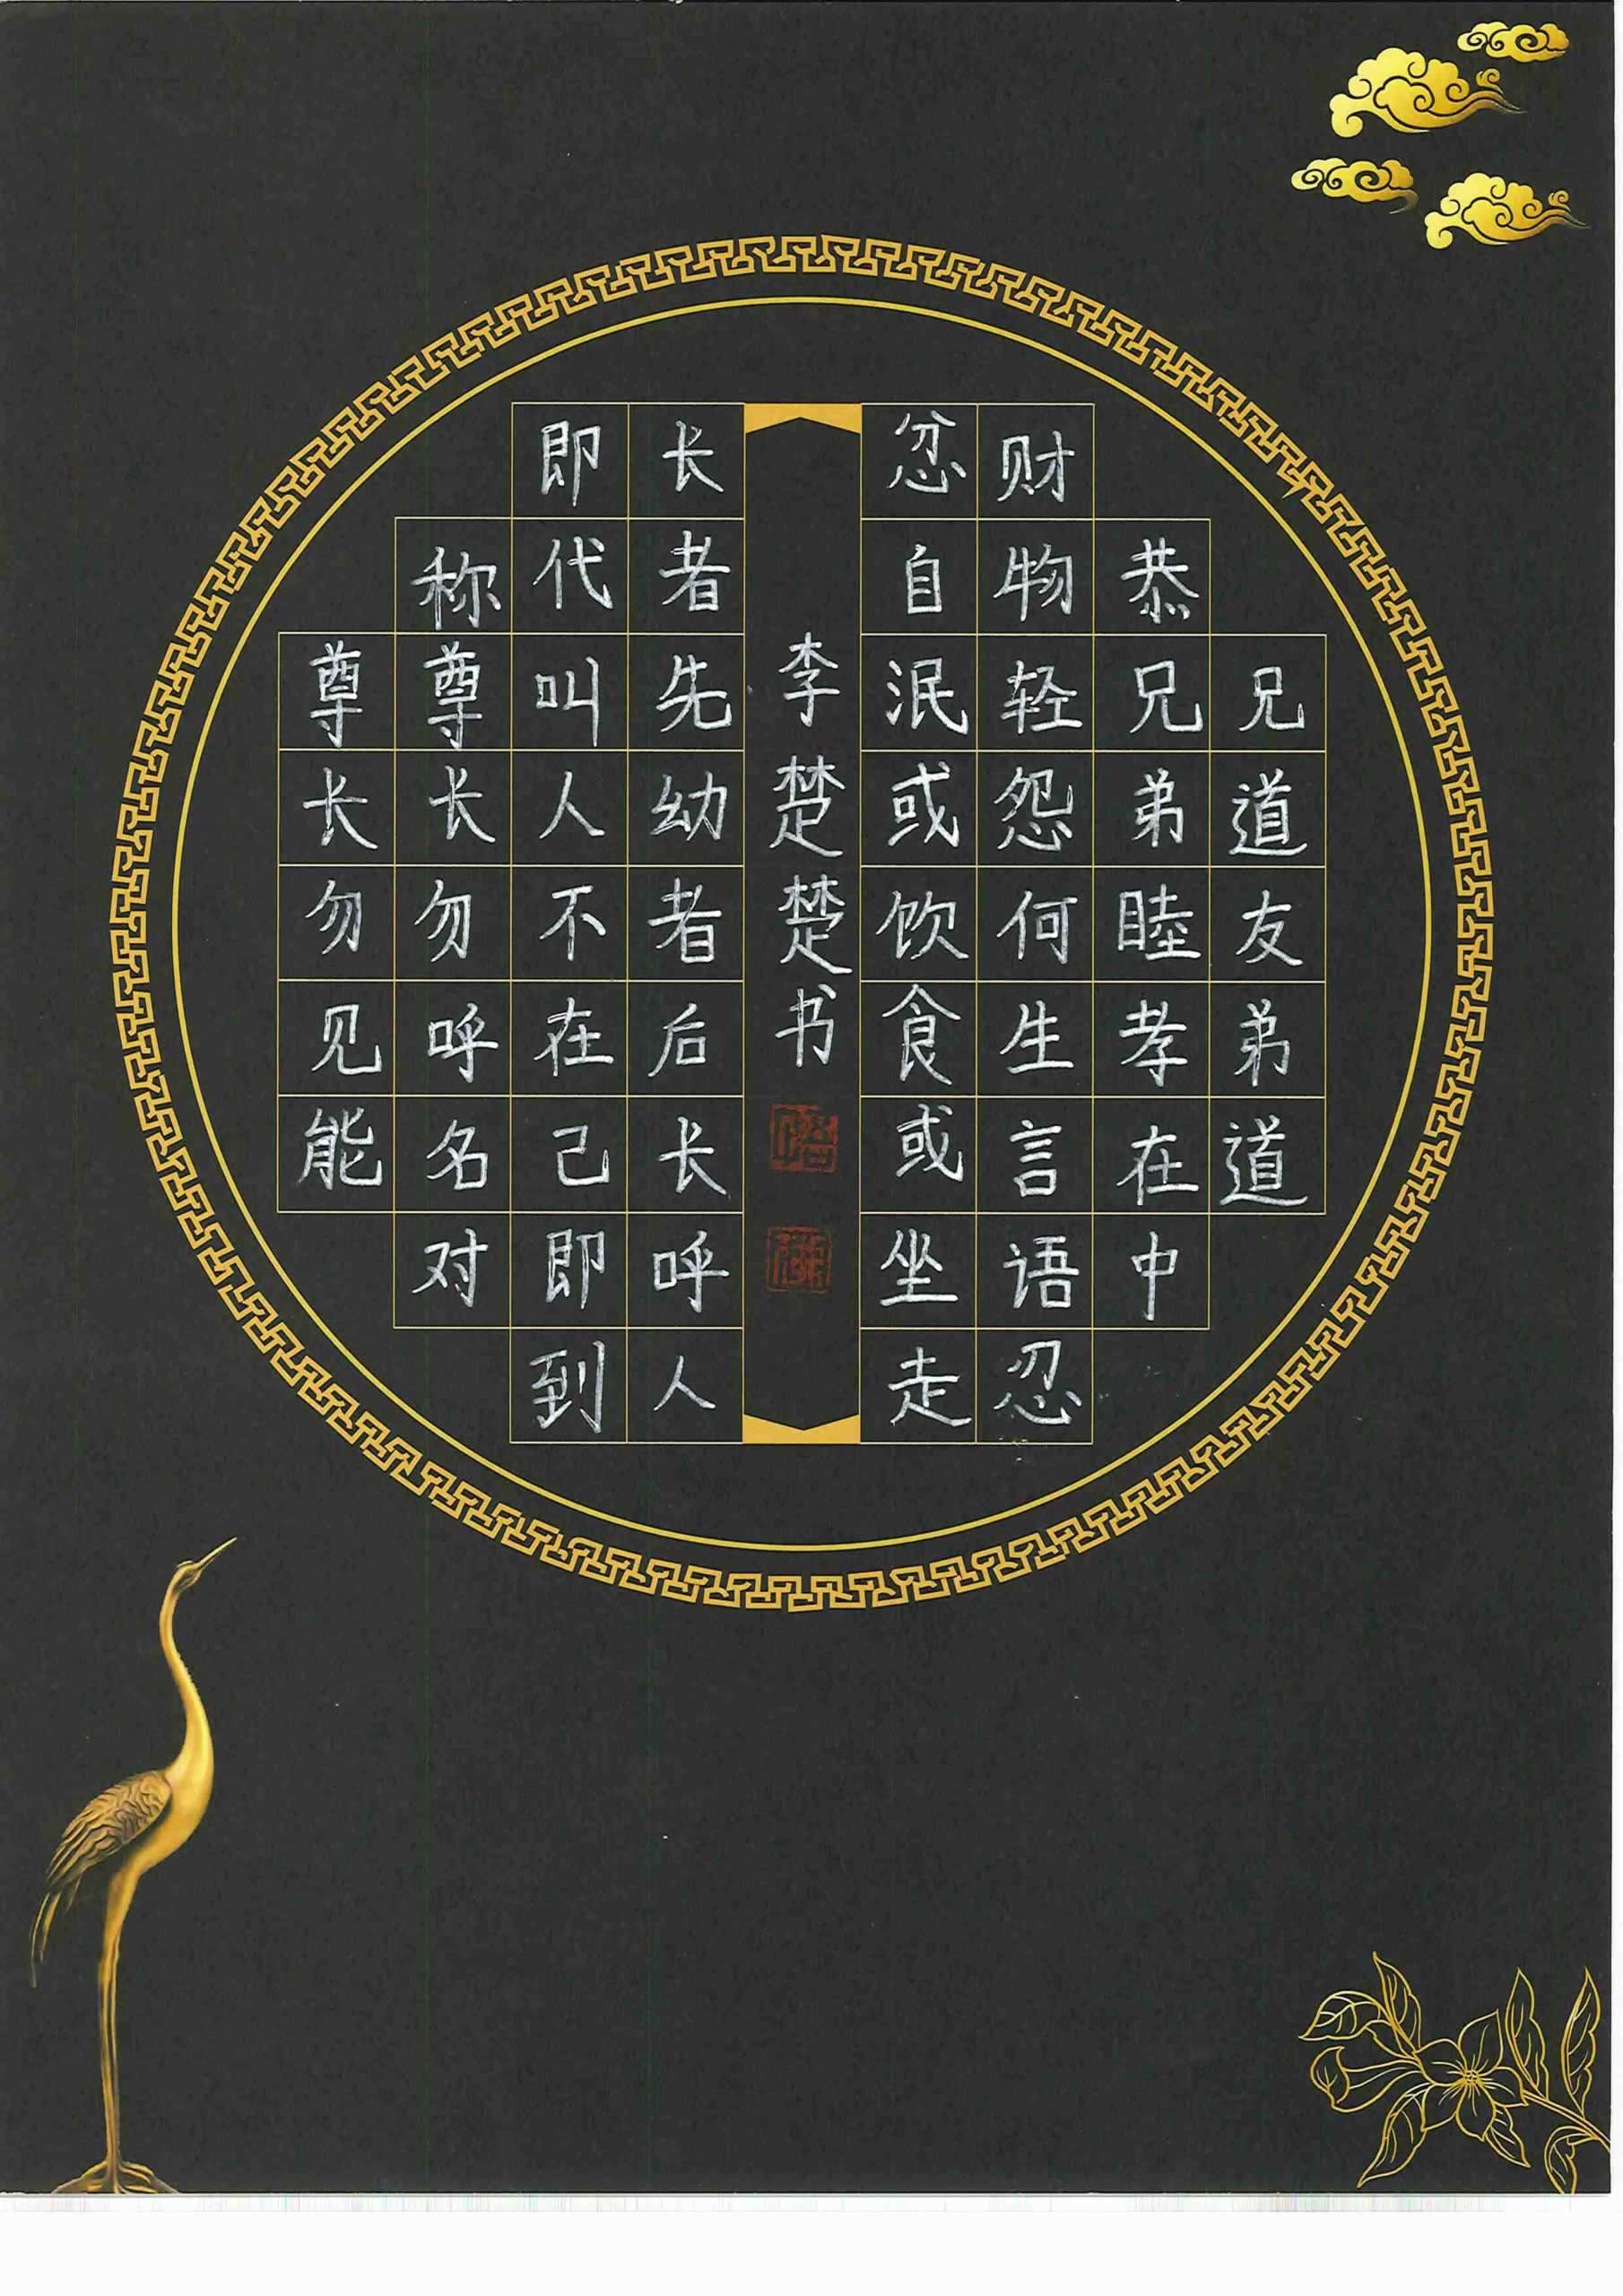 兄道友弟道
恭兄弟睦孝在中
财物轻怨何生言语忍
忿自泯或饮食或坐走
李楚楚书
长者先幼者后长呼人
即代叫人不在己即到
称尊长勿呼名对
尊长勿见能